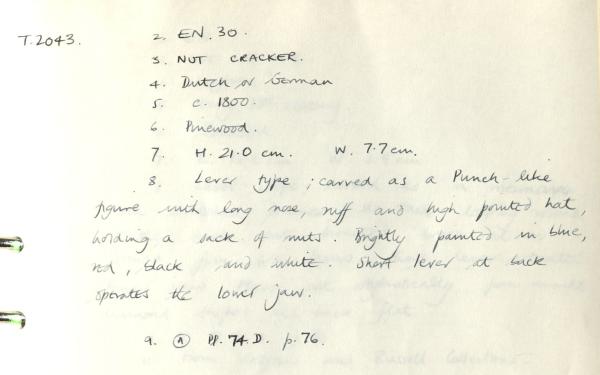 T.2043. 2. EN. 30.
3. NUT CRACKER.
4. Dutch or German
5. c. 1800.
6. Pinewood.
7. H. 21.0 cm. W. 7.7 cm.
8. Lever type; carved as a Punch-like
figure with long nose, ruff and high pointed hat,
holding a sack of nuts. Brightly painted in blue,
red, black and white. Short lever at back
operates the lower jaw.
9. Ⓐ Pl. 74. D. p. 76.